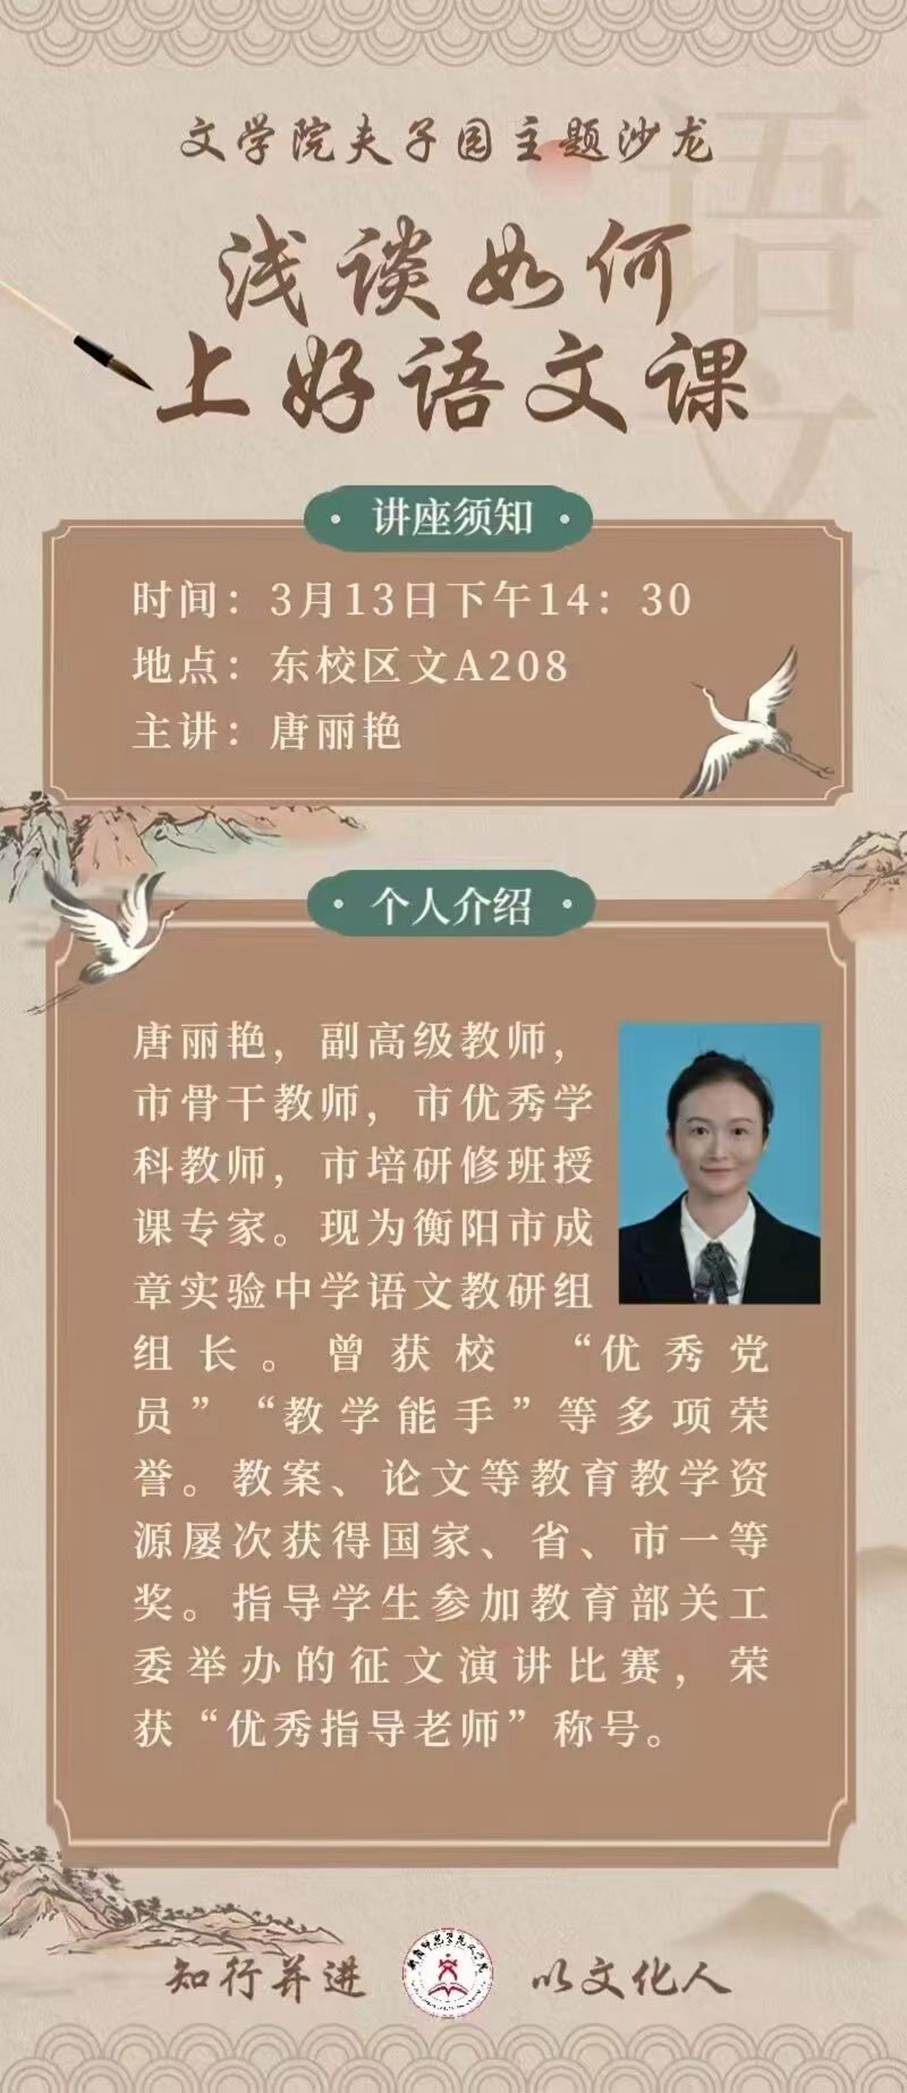 文学院夫子园主题沙龙
语文
浅谈如何
上好语文课
讲座须知
时间：3月13日下午14：30
地点：东校区文A208
主讲：唐丽艳
个人介绍
唐丽艳，副高级教师，
市骨干教师，市优秀学
科教师，市培研修班授
课专家。现为衡阳市成
章实验中学语文教研组
组长。曾获校“优秀党
员”“教学能手”等多项荣
誉。教案、论文等教育教学资
源屡次获得国家、省、市一等
奖。指导学生参加教育部关工
委举办的征文演讲比赛，荣
获“优秀指导老师”称号。
知行并进
以文化人